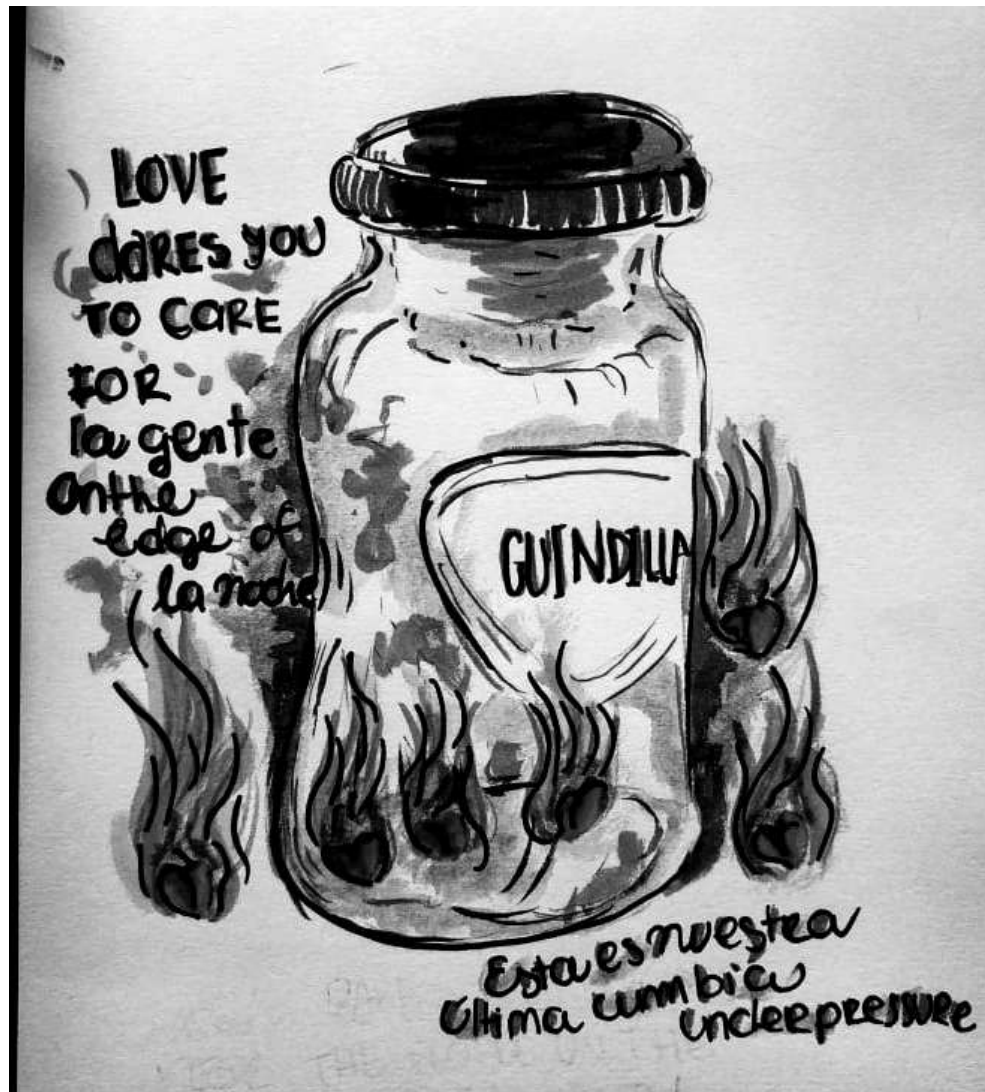 LOVE
dARES YOU
TO CARE
FOR
la gente
on the
edge of
la noche
GUINDILLA
Esta es nuestra
última cumbia
underpressure